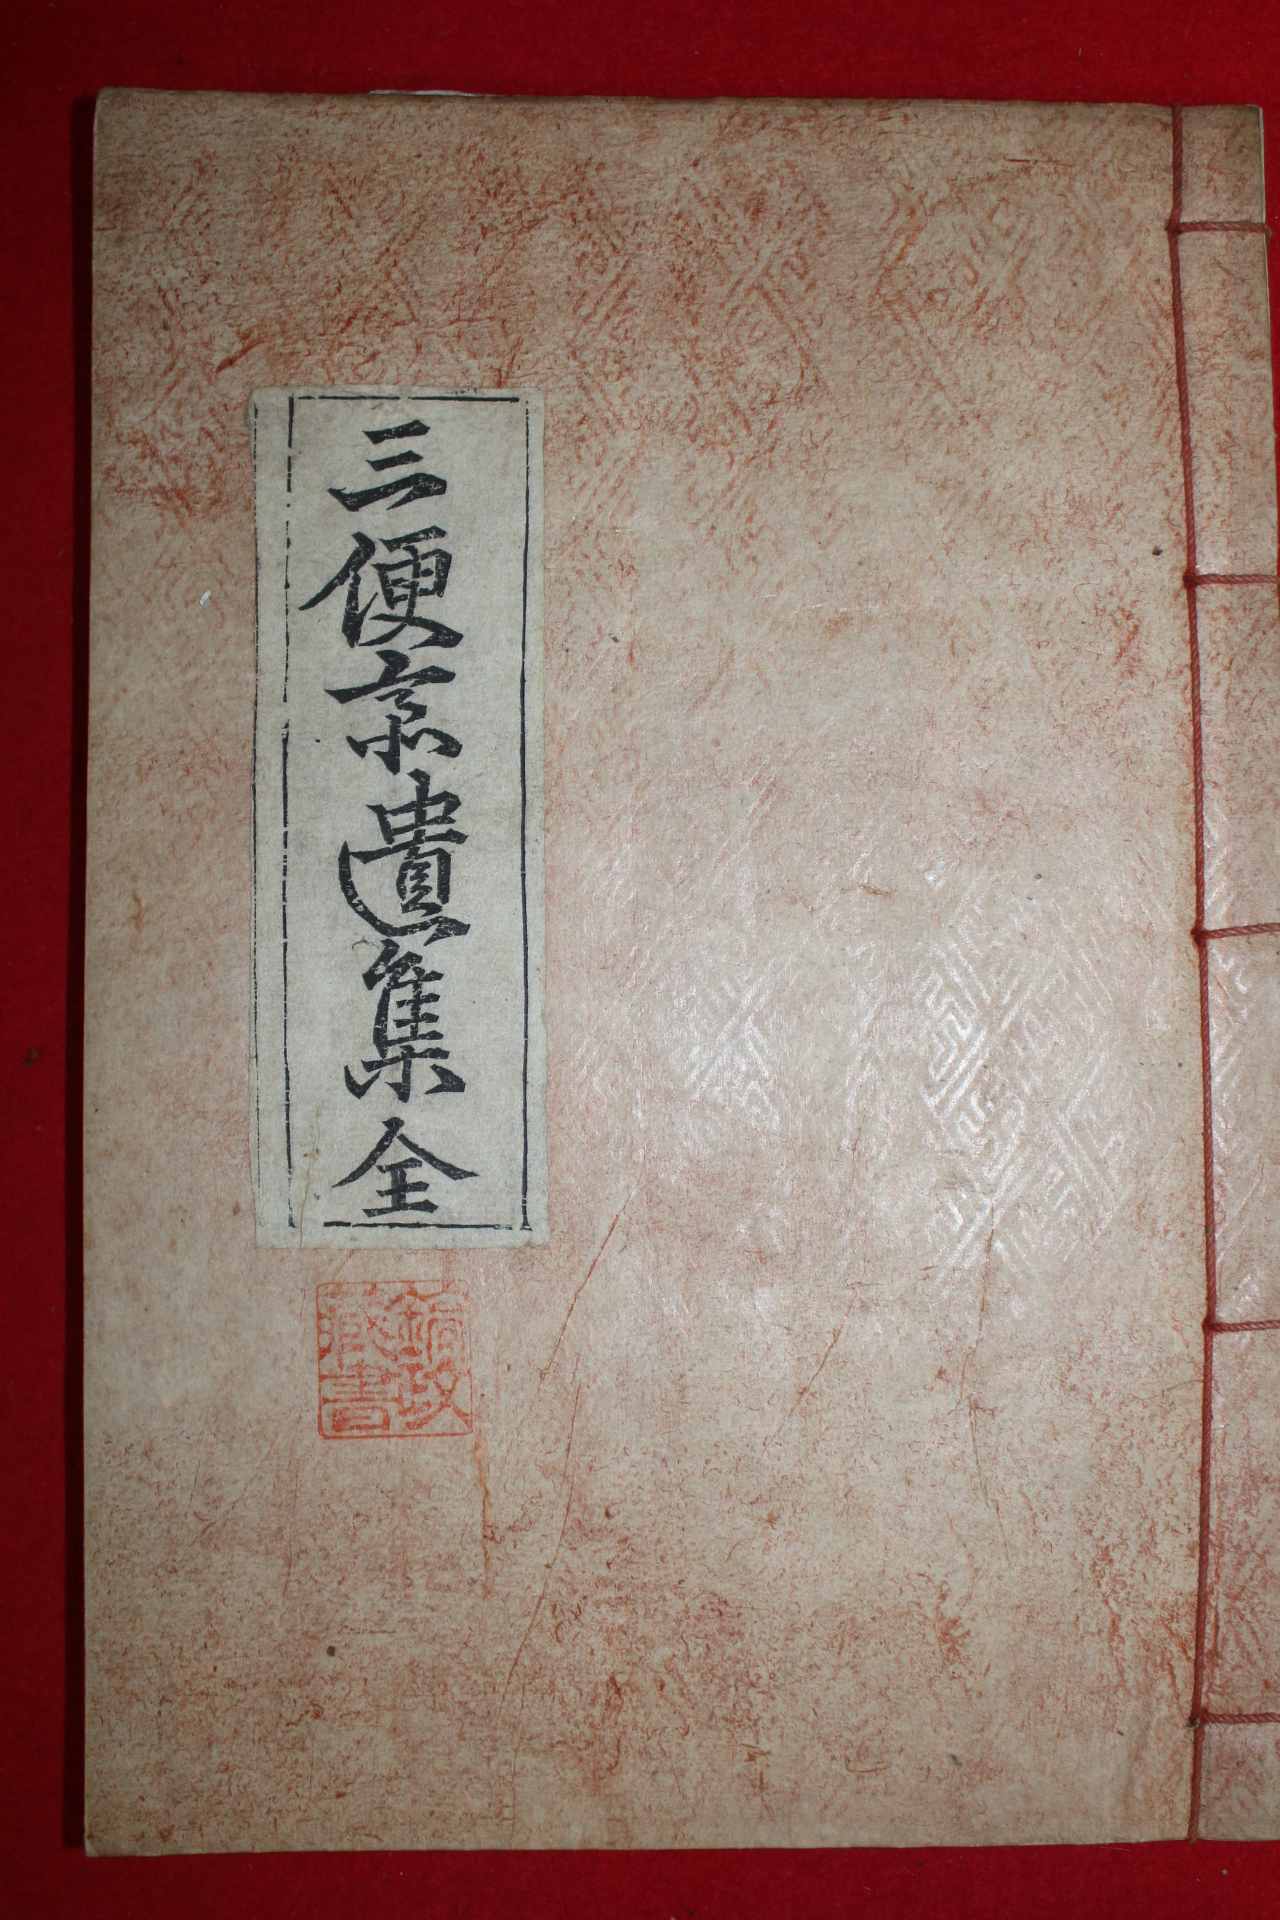 三便斎遺集全
藏書